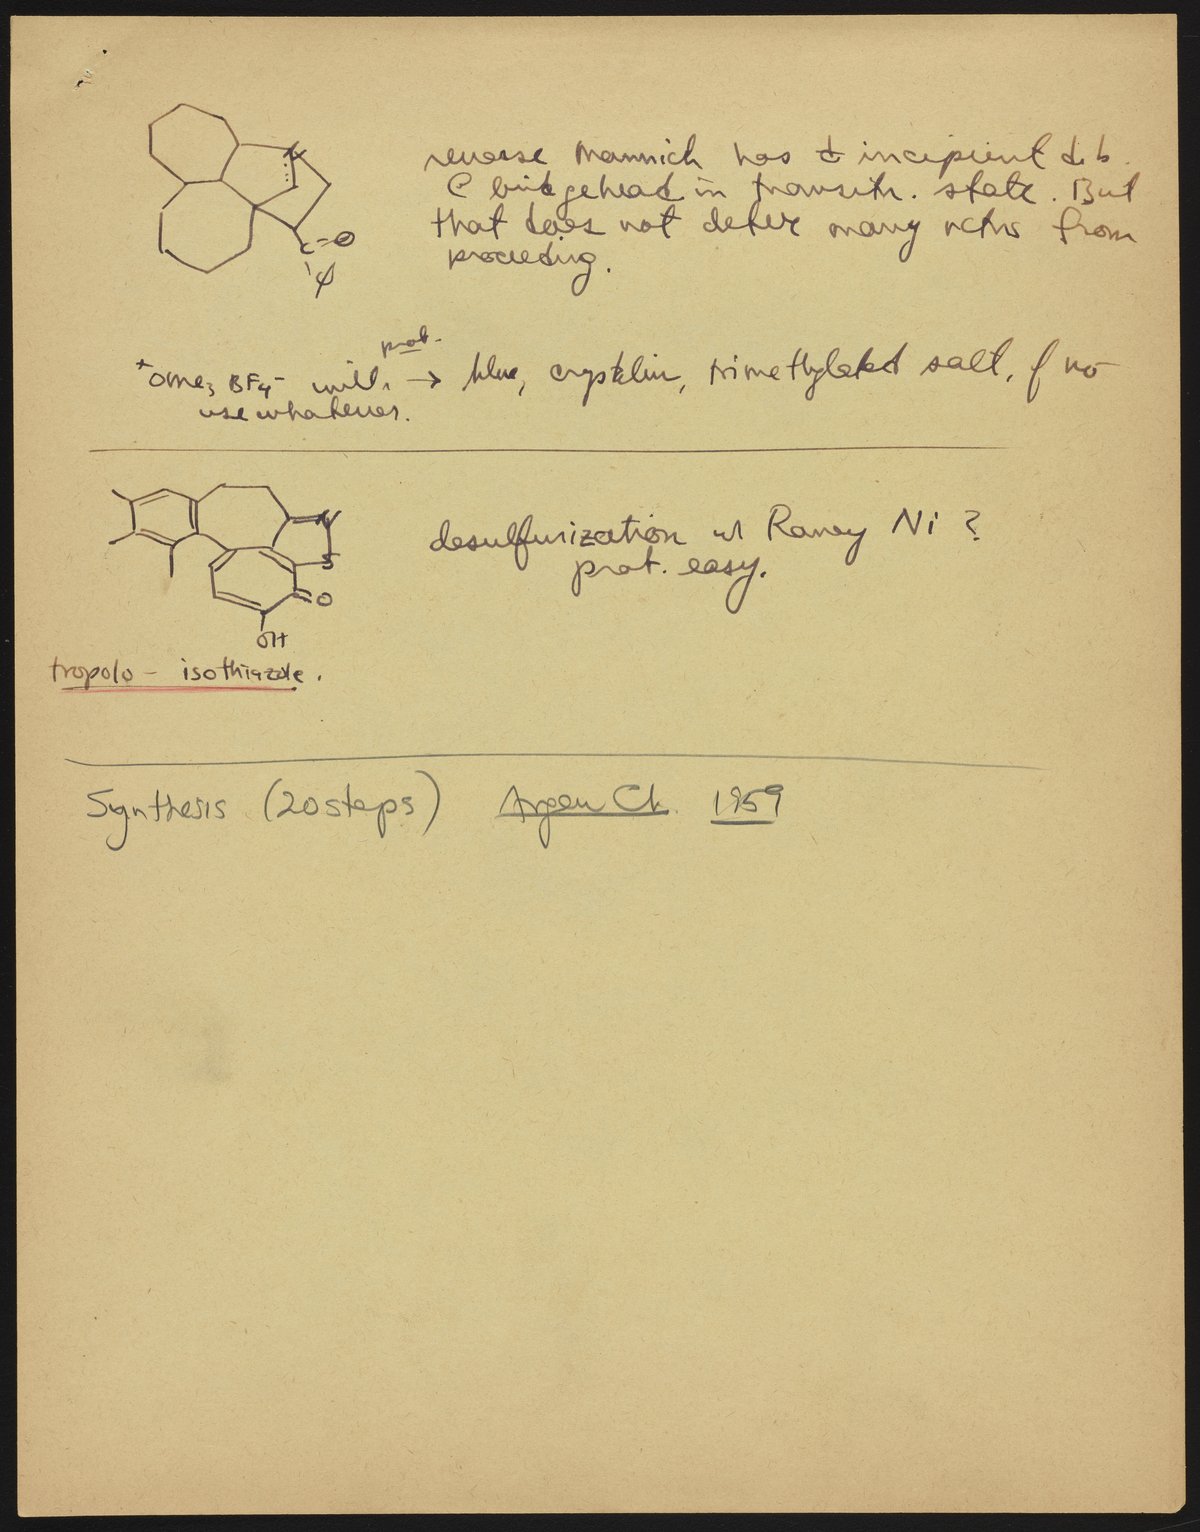 reverse Mannich has incipient d.b.
@ bridgehead in transitn. state. But
that does not deter many rctns from
proceeding.
N
C=O
φ
prob.
+OMe3 BF4- will → blue, crystalin, trimethylated salt, of no
use whatever.
N
S
O
OH
desulfurization w/ Raney Ni ?
prob. easy.
tropolo - isothiazole.
Synthesis (20 steps) Angew Ch. 1959